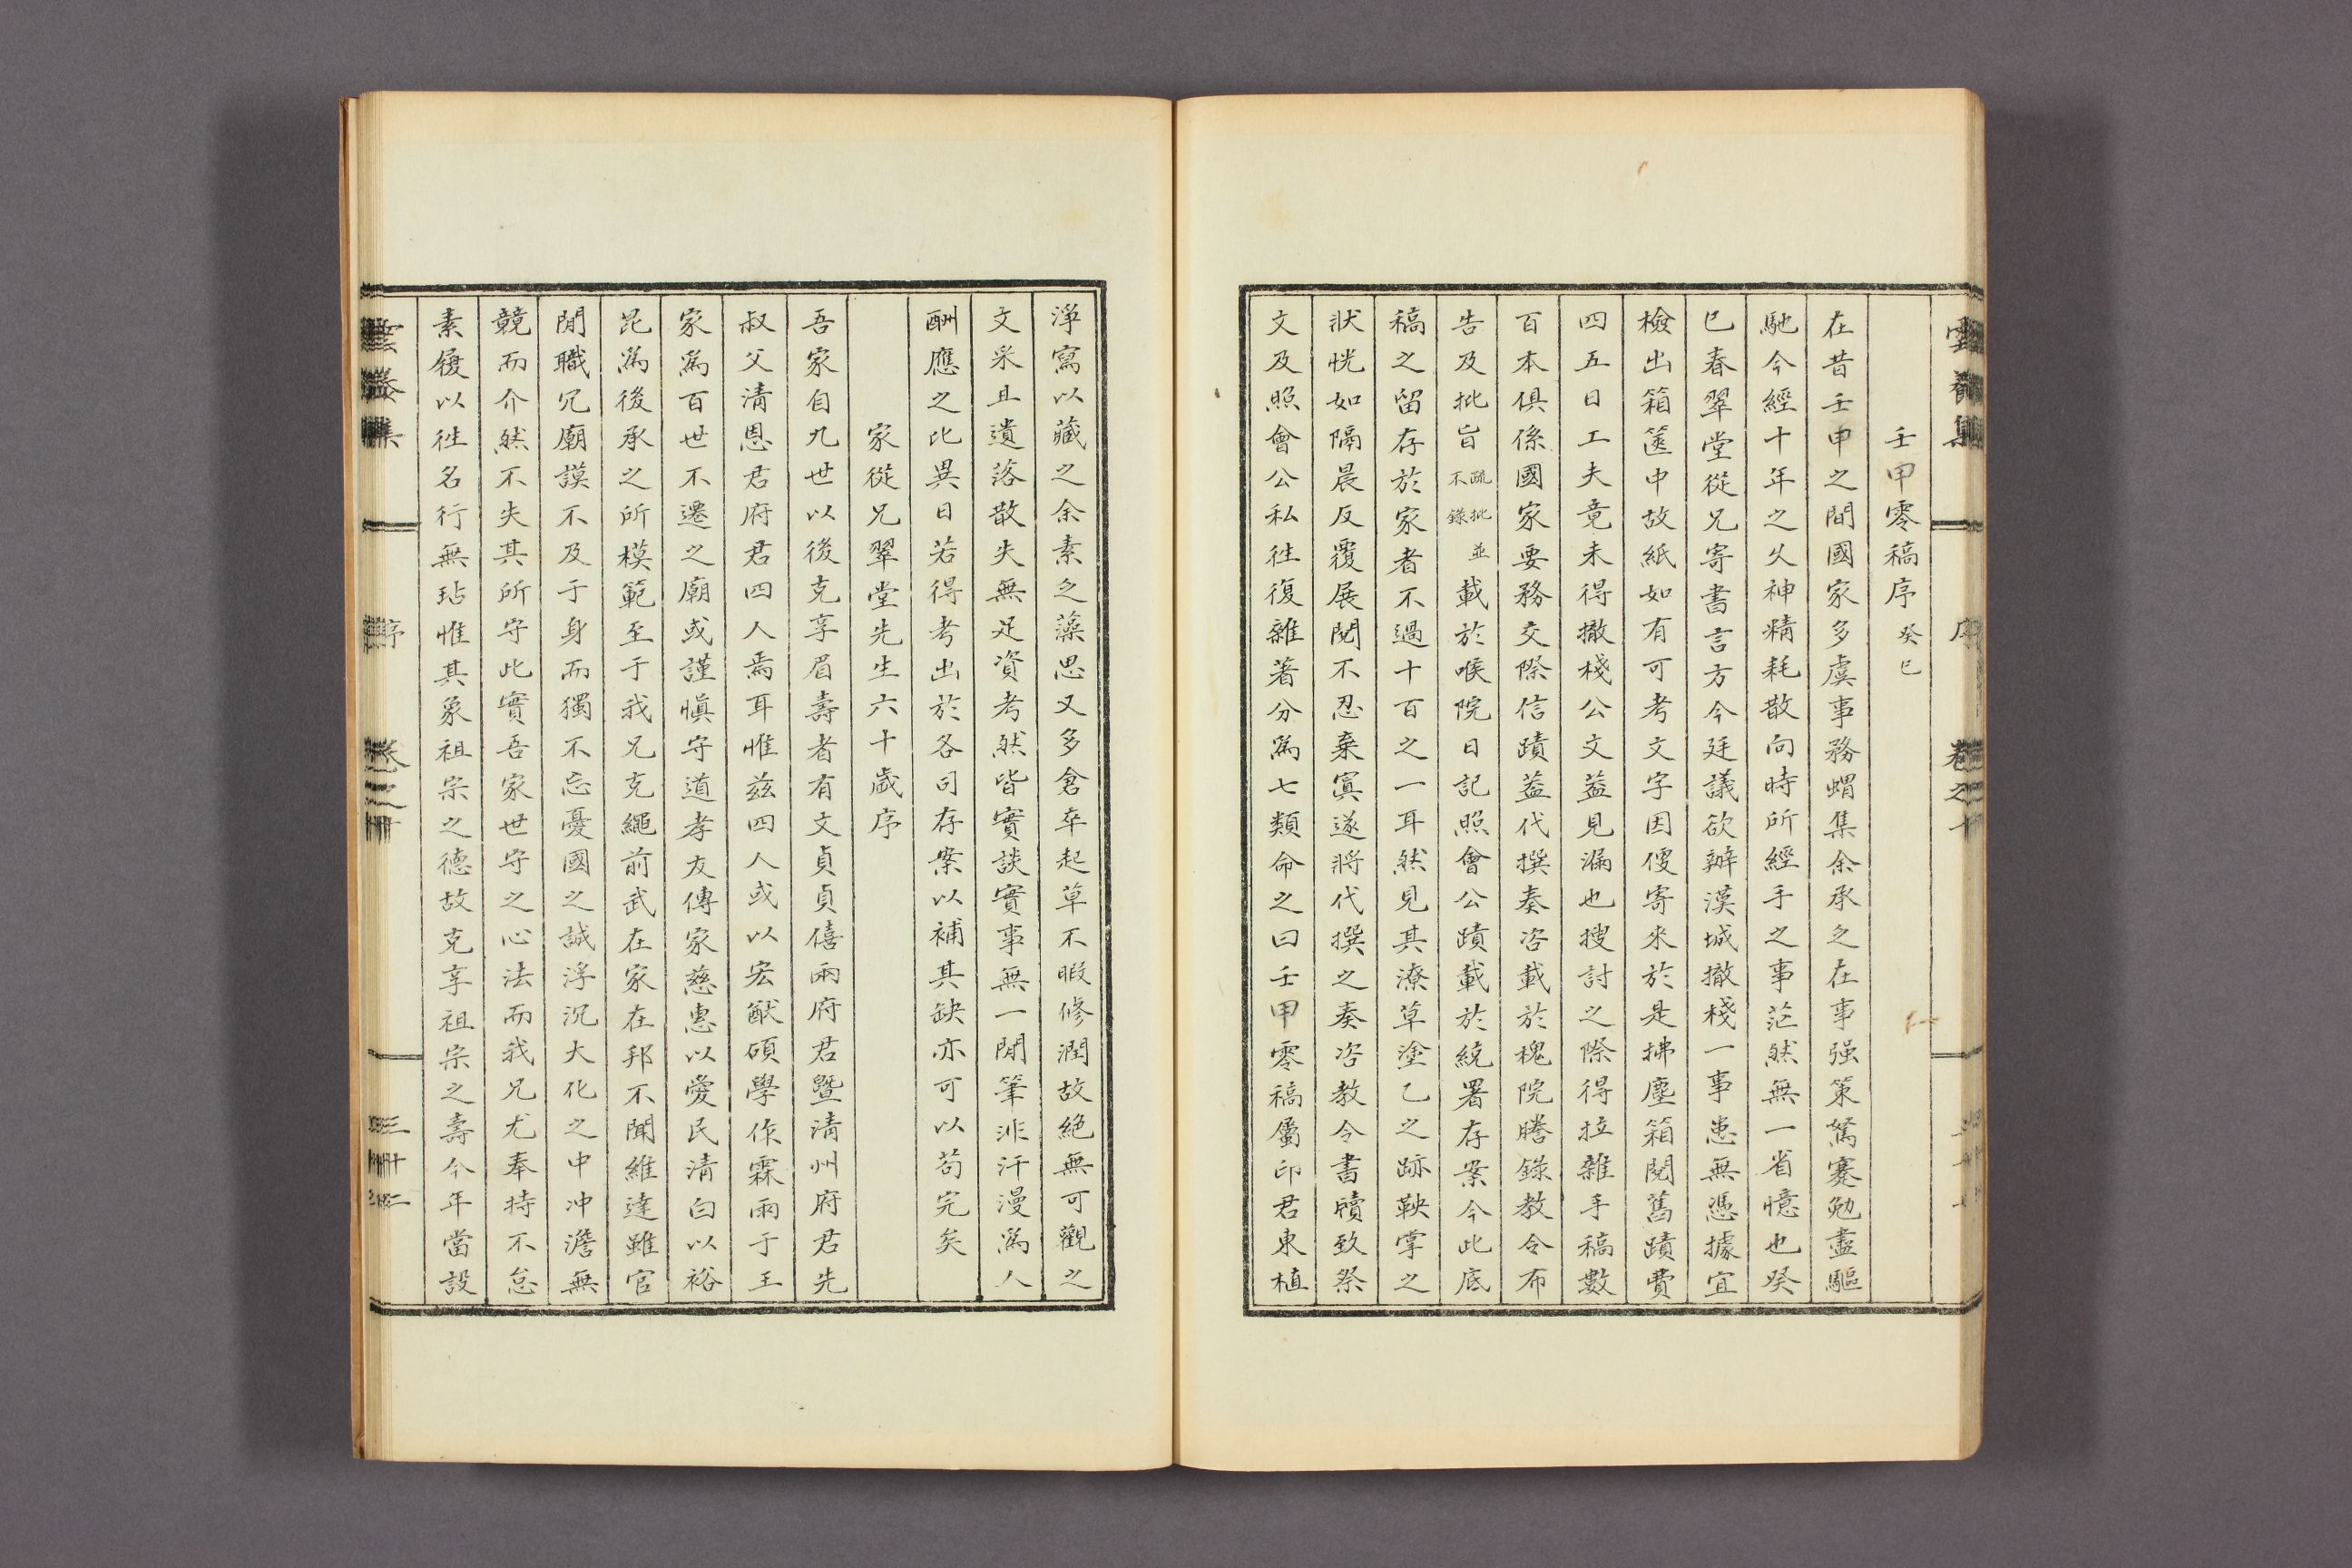 壬甲零稿序 癸巳
在昔壬申之間國家多虞事務蝟集余承乏在事强策駑蹇勉盡驅
馳今經十年之久神精耗散向時所經手之事茫然無一省憶也癸
巳春翠堂從兄寄書言方今廷議欲辦漢城撤棧一事患無憑據宜
檢出箱篋中故紙如有可考文字因便寄來於是拂塵箱閱舊蹟費
四五日工夫竟未得撤棧公文盖見漏也搜討之際得拉雜手稿數
百本俱係國家要務交際信蹟盖代撰奏咨載於槐院謄錄教令布
告及批旨疏批並不錄載於喉院日記照會公蹟載於統署存案今此底
稿之留存於家者不過十百之一耳然見其潦草塗乙之跡鞅掌之
狀恍如隔晨反覆展閱不忍棄寘遂將代撰之奏咨教令書牘致祭
文及照會公私往復雜著分爲七類命之曰壬甲零稿屬印君東植
淨寫以藏之余素乏藻思又多倉卒起草不暇修潤故絕無可觀之
文采且遺落散失無足資考然皆實談實事無一閒筆非汗漫爲人
酬應之比異日若得考出於各司存案以補其缺亦可以苟完矣
家從兄翠堂先生六十歲序
吾家自九世以後克享眉壽者有文貞貞僖兩府君曁淸州府君先
叔父淸恩君府君四人焉耳惟茲四人或以宏猷碩學作霖雨于王
家爲百世不遷之廟或謹愼守道孝友傳家慈惠以愛民淸白以裕
昆爲後承之所模範至于我兄克繩前武在家在邦不聞維達雖官
閒職冗廟謨不及于身而獨不忘憂國之誠浮沉大化之中冲澹無
競而介然不失其所守此實吾家世守之心法而我兄尤奉持不怠
素履以往名行無玷惟其象祖宗之德故克享祖宗之壽今年當設
雲養集 序